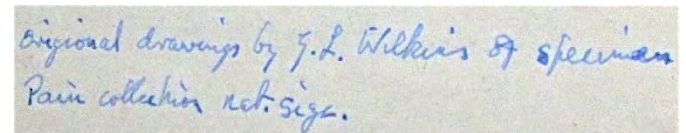 origional drawings by G.L. Wilkins of specimen
Pain collection nat. size.